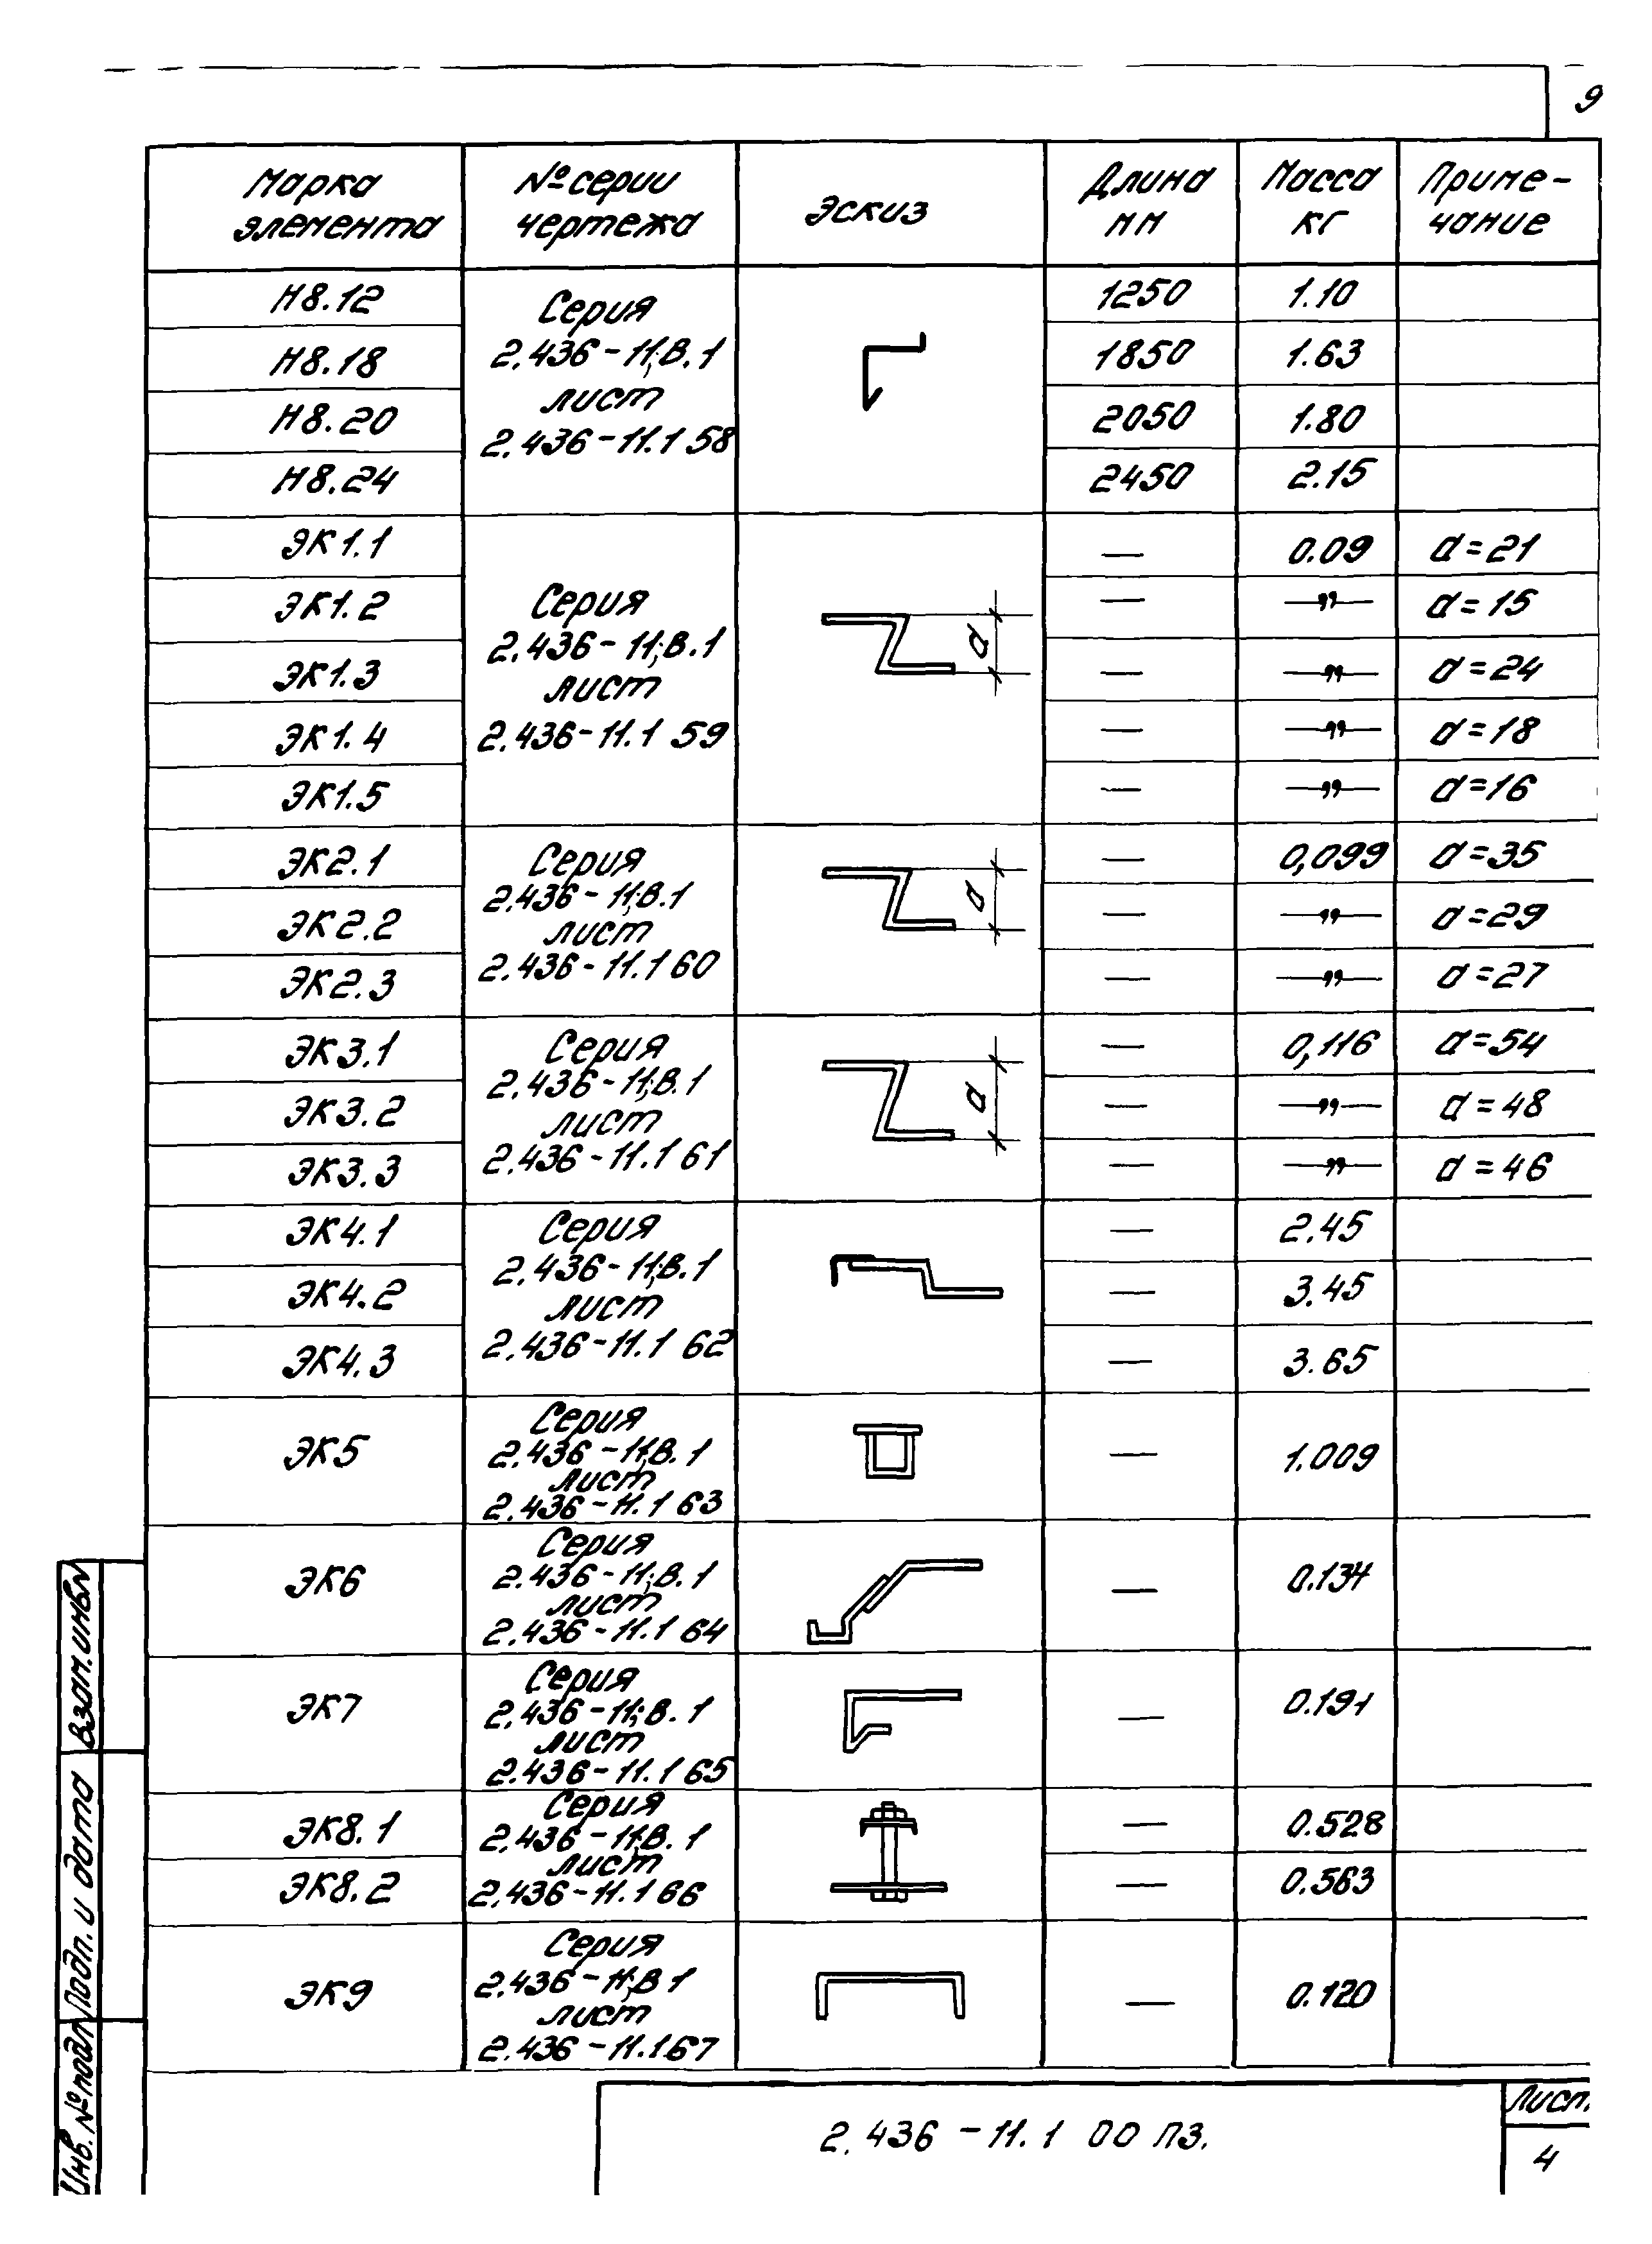 9
Марка элемента | № серии чертежа | Эскиз | Длина мм | Масса кг | Приме-чание
Н8.12 | 1250 | 1.10
Н8.18 | 1850 | 1.63
Н8.20 | 2050 | 1.80
Н8.24 | 2450 | 2.15
Серия
2.436-11;В.1
лист
2.436-11.1 58
ЭК1.1 | — | 0.09 | а=21
ЭК1.2 | — | —"— | а=15
ЭК1.3 | — | —"— | а=24
ЭК1.4 | — | —"— | а=18
ЭК1.5 | — | —"— | а=16
Серия
2.436-11;В.1
лист
2.436-11.1 59
а
ЭК2.1 | — | 0,099 | а=35
ЭК2.2 | — | —"— | а=29
ЭК2.3 | — | —"— | а=27
Серия
2.436-11;В.1
лист
2.436-11.1 60
а
ЭК3.1 | — | 0,116 | а=54
ЭК3.2 | — | —"— | а=48
ЭК3.3 | — | —"— | а=46
Серия
2.436-11;В.1
лист
2.436-11.1 61
а
ЭК4.1 | — | 2.45
ЭК4.2 | — | 3.45
ЭК4.3 | — | 3.65
Серия
2.436-11;В.1
лист
2.436-11.1 62
ЭК5 | — | 1.009
Серия
2.436-11;В.1
лист
2.436-11.1 63
ЭК6 | — | 0.134
Серия
2.436-11;В.1
лист
2.436-11.1 64
ЭК7 | — | 0.191
Серия
2.436-11;В.1
лист
2.436-11.1 65
ЭК8.1 | — | 0.528
ЭК8.2 | — | 0.563
Серия
2.436-11;В.1
лист
2.436-11.1 66
ЭК9 | — | 0.120
Серия
2.436-11;В 1
лист
2.436-11.1.67
Взам.инв.N
Подп. и дата
Инв.№ подл
2.436-11.1 00 ПЗ.
Лист.
4